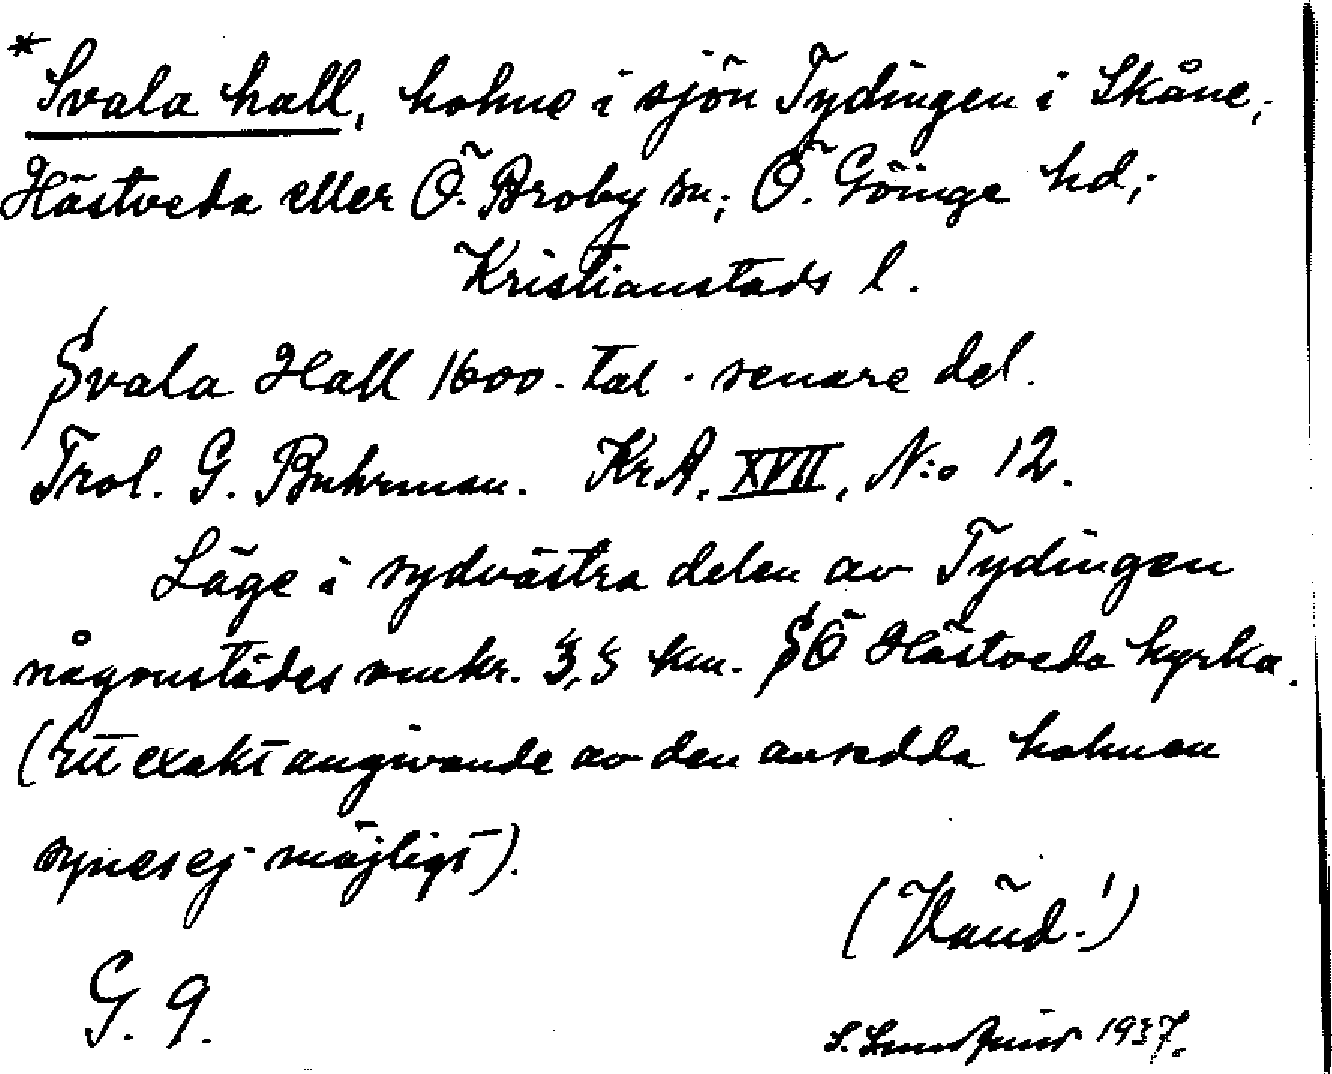 *Svala hall, holme i sjön Tydingen i Skåne,
Hästveda eller Ö. Broby sn; Ö. Göinge hd;
Kristianstads l.
Svala Hall 1600-tal. senare del.
Trol. G. Buhrman. KrA, XVII, N:o 12.
Läge i sydvästra delen av Tydingen
någonstädes omkr. 3,5 km. SÖ Hästveda kyrka.
(Ett exakt angivande av den avsedda holmen
synes ej möjligt).
(Vänd!)
G. 9.
S. 1937.